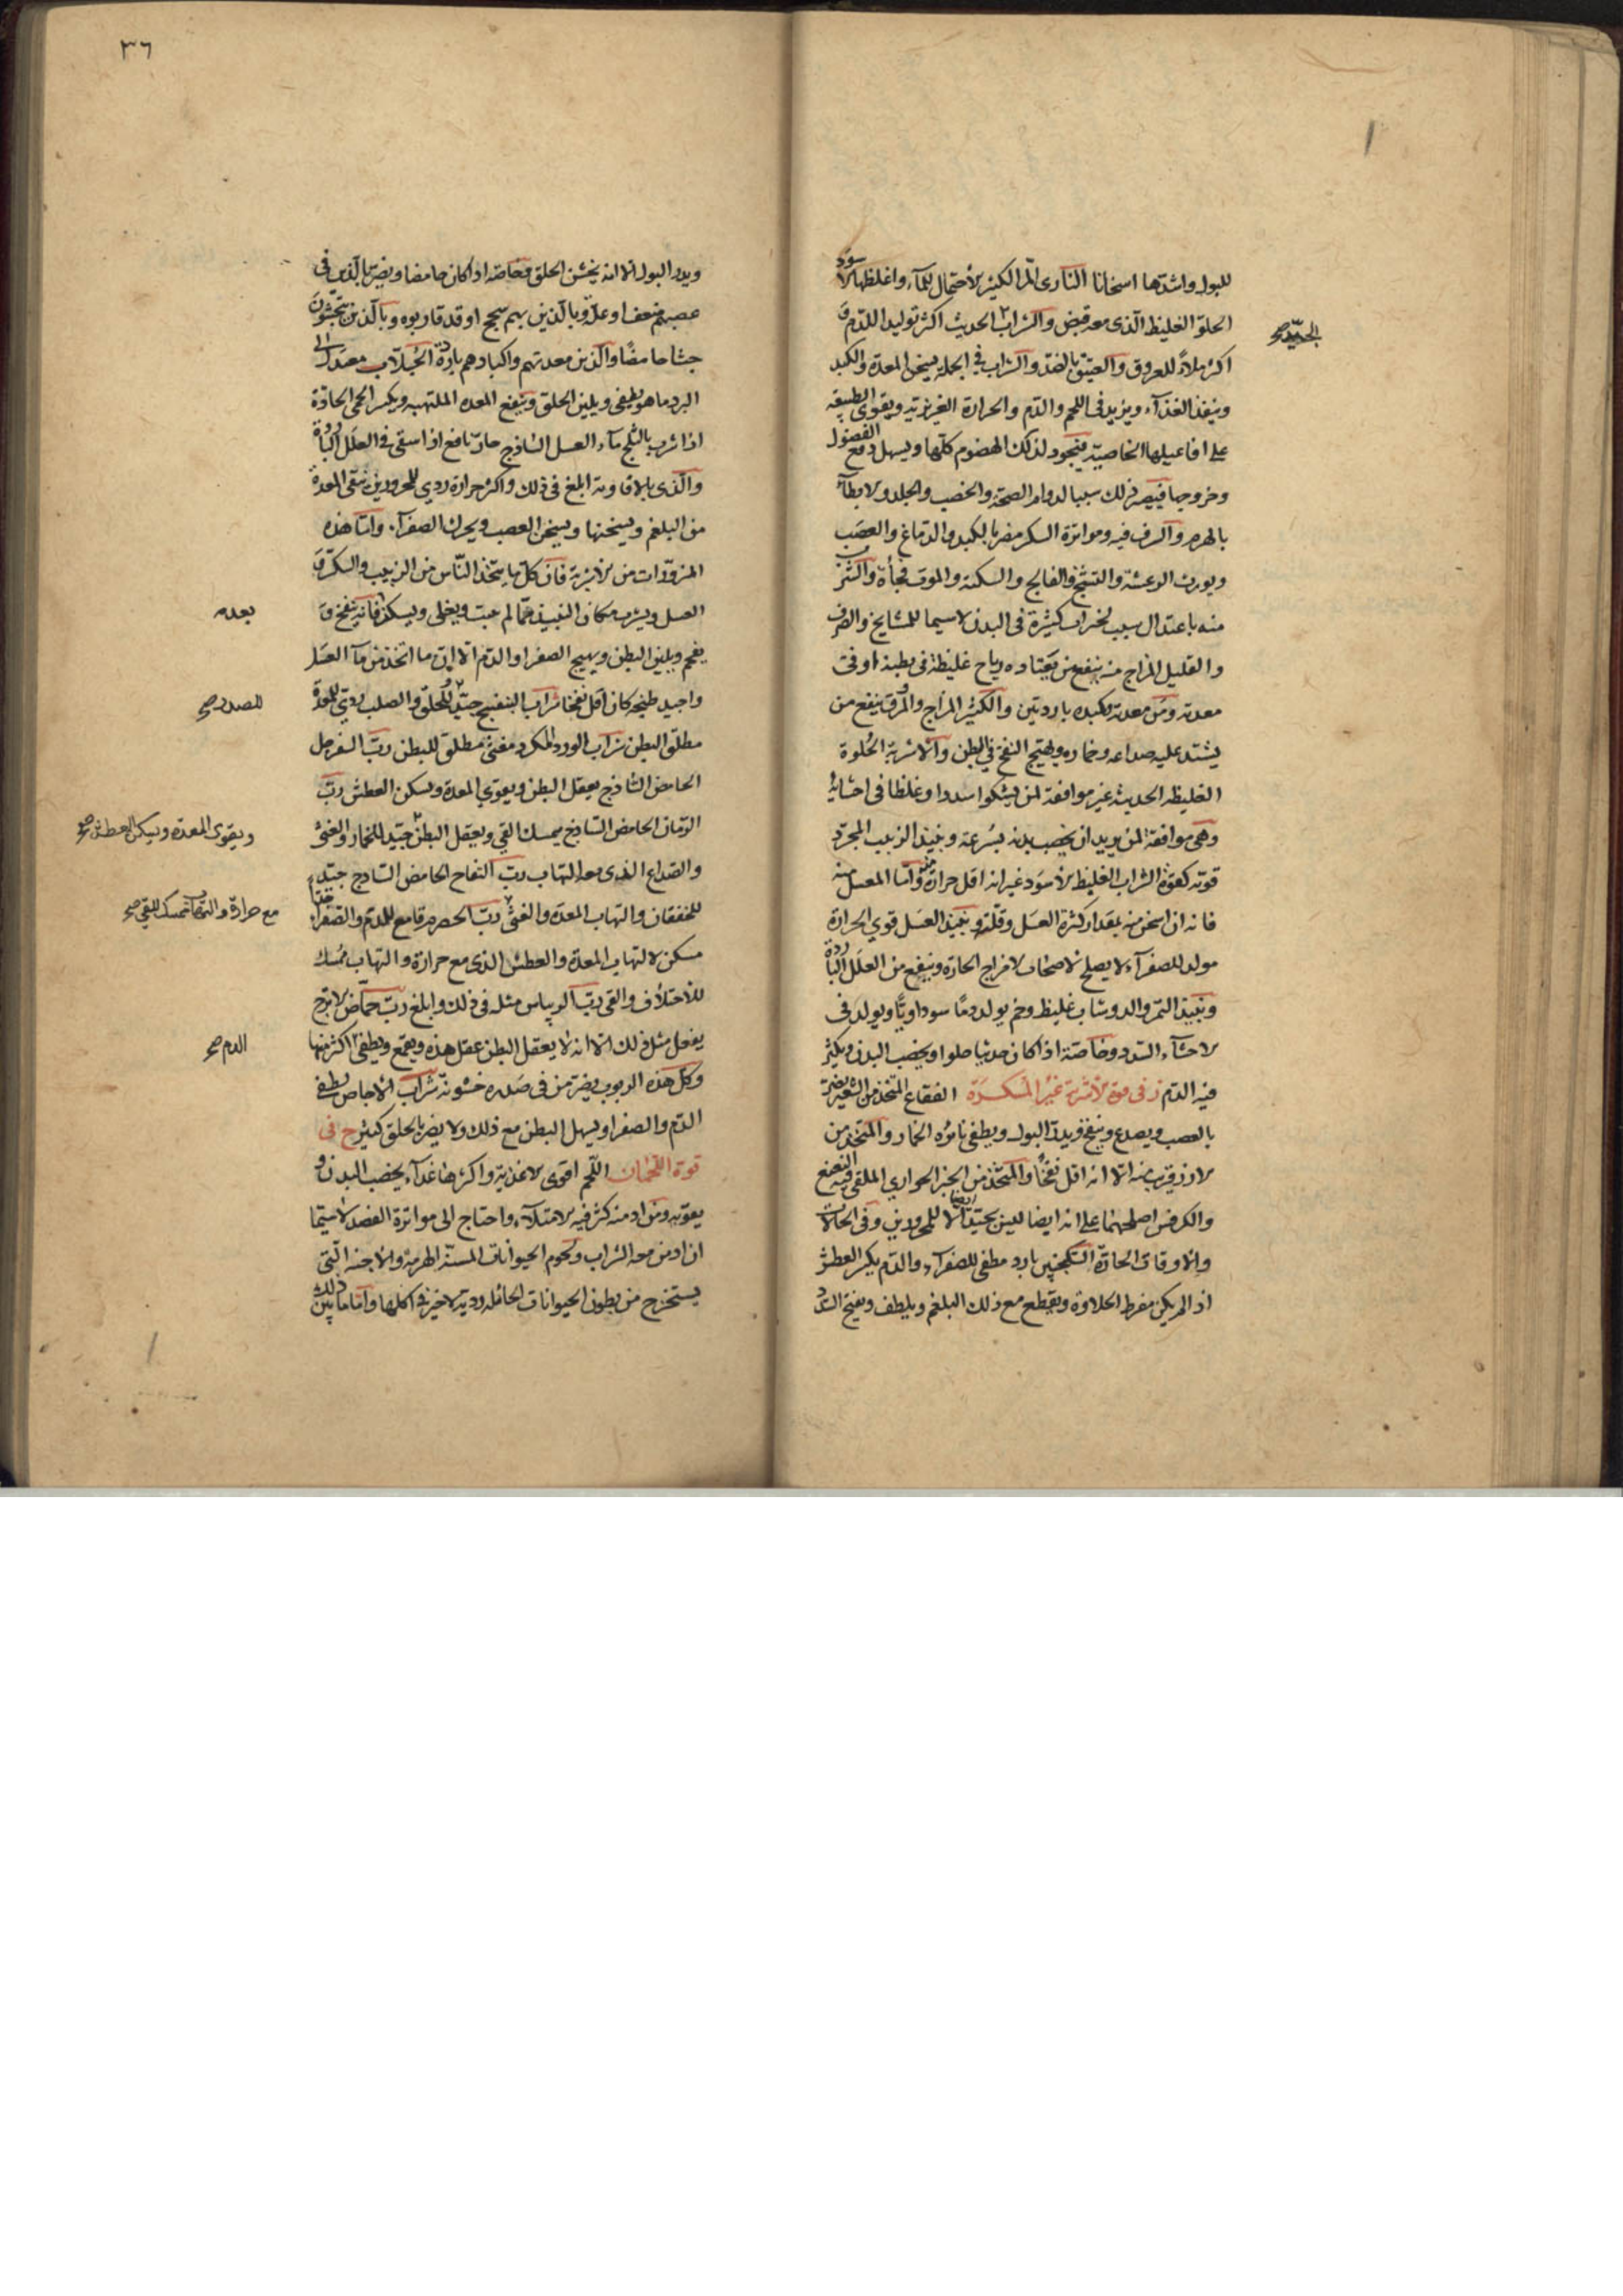 للبول واشدّها اسخانا النارى المرّ الكثير الاحتمال للمآء واغلظها الاسود
الحلو الغليظ الّذى معه قبض والشراب الحديث اكثر توليدا للدّم و
الجيّد صح
اكثر ملاءً للعروق والعتيق بالضدّ والشراب فى الجملة يسخن المعدة والكبد
وينفذ الغذآء ويزيد فى اللحم والدّم والحرارة الغريزيّة ويقوى الطبيعة
على افاعيلها الخاصيّة فيجود لذلك الهضوم كلّها ويسهل دفع الفضول
وخروجها فيصير ذلك سببا لدوام الصحّة والخصب والجلد ولابطآء
بالهرم والسرف فيه ومواترة السكر مضرّ بالكبد والدّماغ والعصَب
ويورث الرعشة والتشنّج والفالج والسكتة والموت فجأة والشرب
منه باعتدال سبب لخيرات كثيرة فى البدن لاسيما للمشايخ والصرف
والقليل المزاج منه ينفع من يَعتاده رياح غليظة فى بطنه او فى
معدته ومَن معدته وكبده باردتين والكثير المزاج والمروّق ينفع من
يشتد عليه صداعه وخماره ويهيّج النفخ فى البطن والاشربة الحُلوة
الغليظه الحديثة غير موافقة لمن يشكوا سددا وغلظا فى احشايه
وهى موافقة لمن يريد ان يخصب بدنه بسُرعة ونبيذ الزبيب المجرّد
قوته كقوّة الشراب الغليظ الاسوَد غير انه اقل حرارة منه وامّا المعسل منه
فانه اسخن منه بمقدار كثرة العسَل وقلّته ونبيذ العسَل قوي الحرارة
مولد للصفرآء لا يصلح لاصحاب الامزاج الحارّة وينفع من العلَل الباردة
ونبيذ التمر والدوشاب غليظ وخم يولد دمًا سوداويًّا ويولد فى
الاحشآء السدد وخاصّة اذا كان حديثا حلوا ويخصب البدن ويكثر
فيه الدّم ز فى قوة الاشربة غير المُسكرَة الفقاع المتخذ من الشعير يضرّ
بالعصب ويصدع وينفخ ويدرّ البول ويطفى نائرة الخمار والمتّخذ من
الارز قريب منه الا انه اقل نفخًا والمتّخذ من الخبز الحوارى الملقى فيه النعنع
والكرفس اصلحهما على انه ايضا ليس بجيّد ايضا الّا للمحرورين وفى الحالات
والاوقات الحارّة السكنجبين بارد مطفى للصفرآء والدّم يكسر العطش
اذا لم يكن مفرط الحلاوة ويقطع مع ذلك البلغم ويلطف ويفتح السدد
٣٦
ويدر البول الّا انه يخشن الحلق وخاصّة اذا كان حامضا ويضرّ بالّذين فى
عصبهم ضعف او علّة وبالّذين بهم سحج او قد قاربوه وبالّذين يتجشّون
جشا حامضًا والّذين معدتهم واكبادهم باردة الجُلّاب معتدل الى
البرد ما هو يطفى ويلين الحلق وينفع المعده الملتهبه ويكسر الحمى الحادّة
اذا شرب بالثلج مآء العسل السّاذج حارّ نافع اذا استقى فى العلَل الباردة
والّذى بالافاويه ابلغ فى ذلك واكثر حرارة ردي للمحرورين ينقى المعدة
من البلغم ويسخنها ويسخن العصب ويحرك الصفرآء وامّا هذه
المزوّرات من الاشربة فان كلّ ما يتّخذ النّاس من الزبيب والسكّر و
العسل ويشرب مكان النبيذ ممّا لم يغلى ويسكن فانه ينفخ و
بعده
يفحم ويلين البطن ويهيج الصفرا والدّم الّا ان ما اتخذ من مآء العسَل
واجيد طبخه كان اقل نفخا شراب البنفسج جيّد للحلق والصلب ردي للمعدة
للصدر صح
مطلق البطن شراب الورد المكرّر مغثى مطلق للبطن ربّ السفرجل
الحامض السّاذج يعقل البطن ويقوي المعدة ويسكن العطش ربّ
الرّمان الحامض السّاذج يمسك القي ويعقل البطن جيّد للخمار والغثى
ويقوى المعدة ويسكن العطش صح
والصّداع الّذى معه التهاب ربّ التفاح الحامض السّاذج جيّد
للخفقان والتهاب المعدة والغثى ربّ الحصرم قامع للدّم والصّفرا جدّا
مع حرارة والتهاب ممسك للقى صح
مسكن لالتهاب المعدة والعطش الذى مع حرارة والتهاب مُمسك
للاختلاف والقى ربّ الريباس مثله فى ذلك وابلغ ربّ حمّاض الاترج
يفعل مثل ذلك الّا انه لا يعقل البطن عقل هذه ويقمع ويطفى اكثر منها
الدم صح
وكلّ هذه الربوب يضرّ من فى صَدره خشونة شراب الاجاص يطفى
الدّم والصفرا ويسهل البطن مع ذلك ولا يضر بالحلق كثير ح فى
قوة اللّحمان اللّحم اقوى الاغذية واكثرها غذآء يخصب البدن و
يقوّيه ومَن ادمنه كثر فيه الامتلآء واحتاج الى مواترة الفصد لاسيّما
ان ادمن معه الشراب ولحوم الحيوانات المسنّة الهرمة والاجنه الّتى
يستخرج من بطون الحيوانات الحائله ردية لاخير فى اكلها وامّا ما بين ذلك